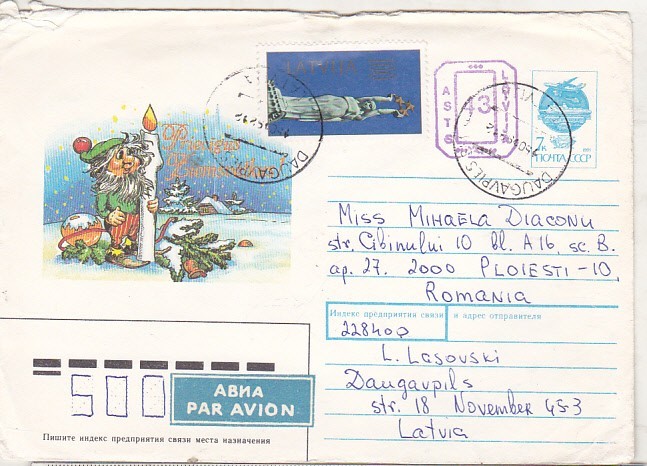 LATVIJA
LATVIJA
ASTS
3
7 к
ПОЧТА СССР
DAUGAVPILS
DAUGAVPILS
Priecīgus
Ziemassvētkus!
Miss Mihaela Diaconu
str. Cibinului 10 bl. A16, sc. B.
ap. 27. 2000 PLOIESTI-10,
Romania
Индекс предприятия связи и адрес отправителя
228400
L. Lasovski
Daugavpils
str. 18 November 45-3
Latvia
АВИА
PAR AVION
Пишите индекс предприятия связи места назначения